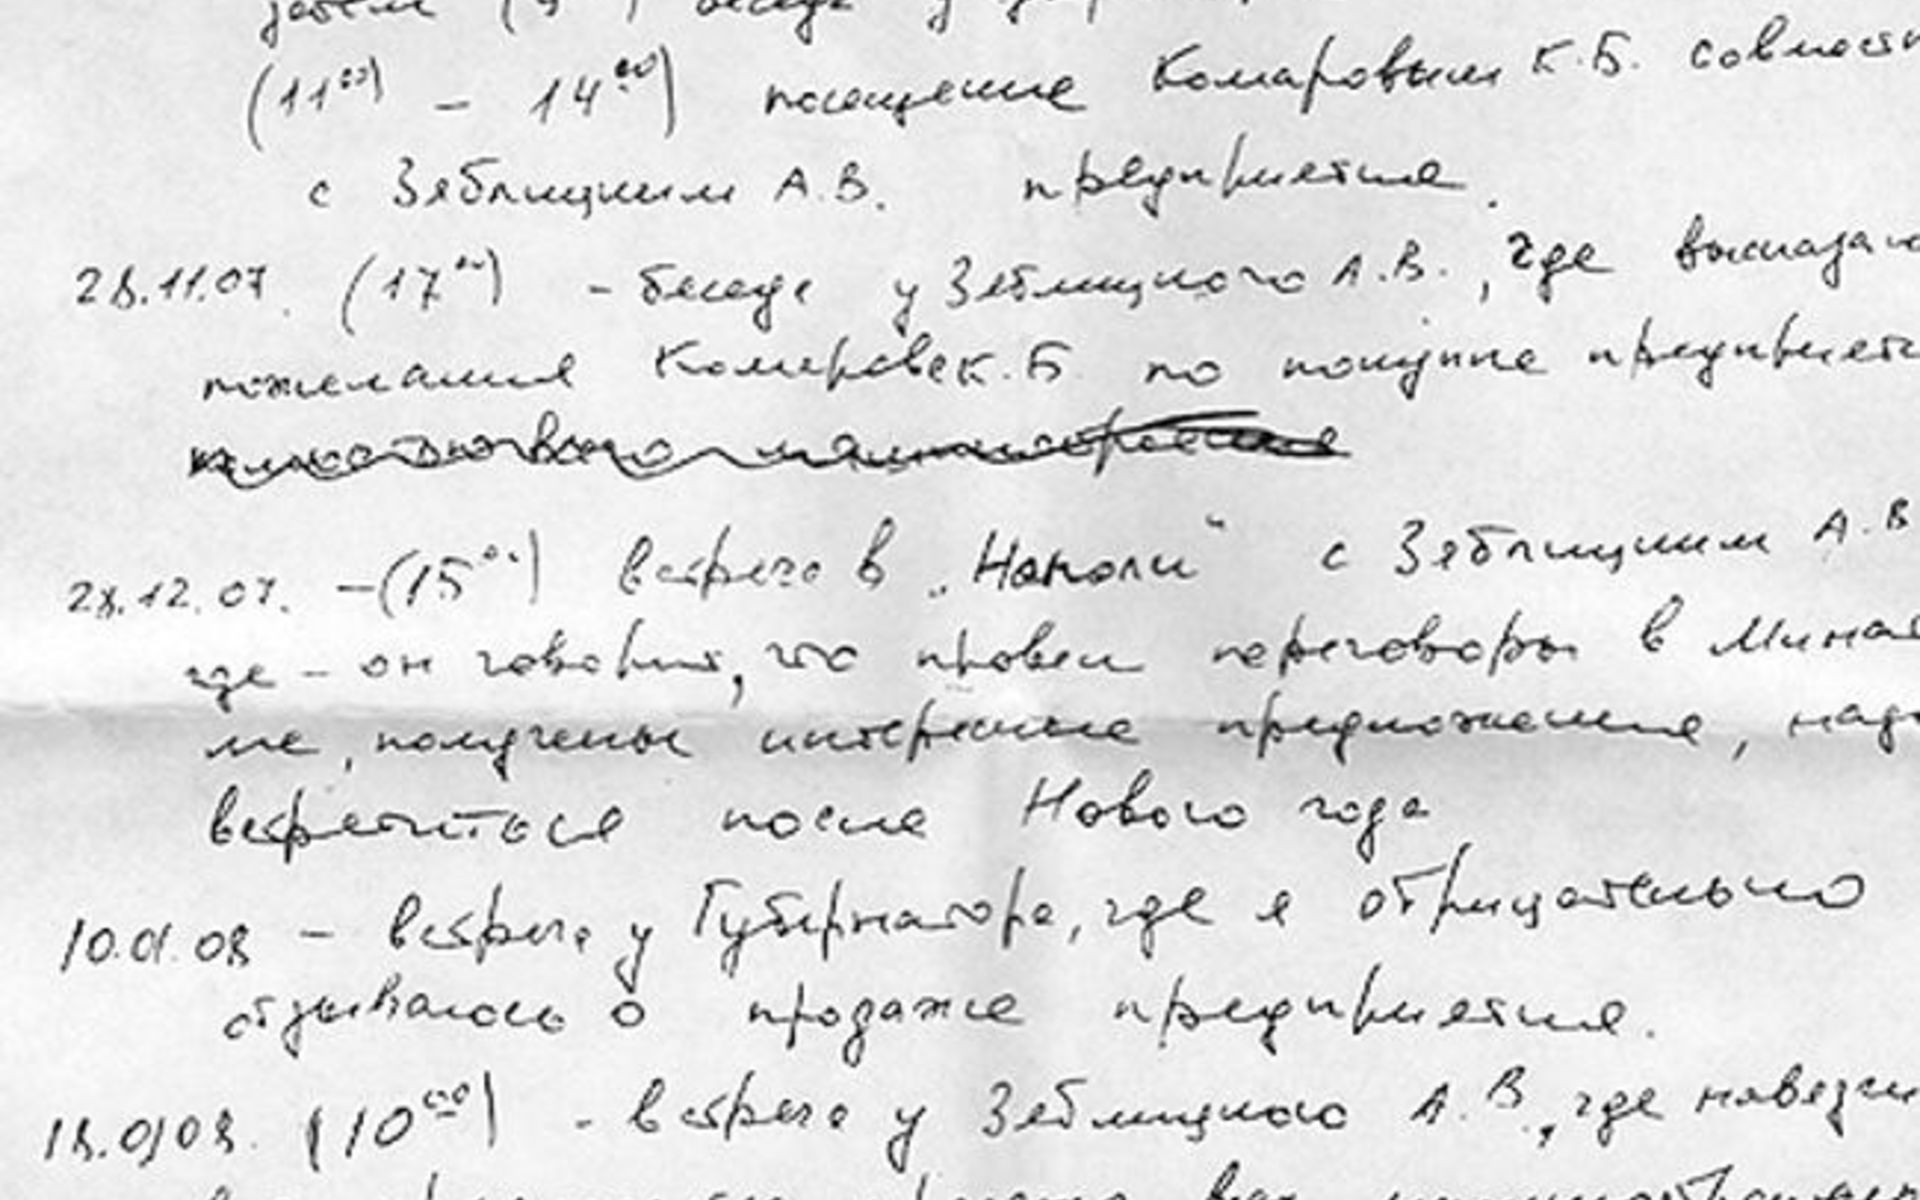 затем ( ) беседа у
(11⁰⁰ – 14⁰⁰) посещение Комаровым К.Б. совместн
с Зяблицким А.В. предприятия.
28.11.07. (17⁰⁰) – беседа у Зяблицкого А.В., где высказаны
пожелания Комарова К.Б. по покупке предприяти
28.12.07. – (15⁰⁰) встреча в „Наполи“ с Зяблицким А.В
где – он говорит, что провел переговоры в Минат
ме, получены интересные предложения, надо
встретиться после Нового года
10.01.08 – встреча у Губернатора, где я отрицательно
отзываюсь о продаже предприятия.
18.01.08. (10⁰⁰) – встреча у Зяблицкого А.В., где